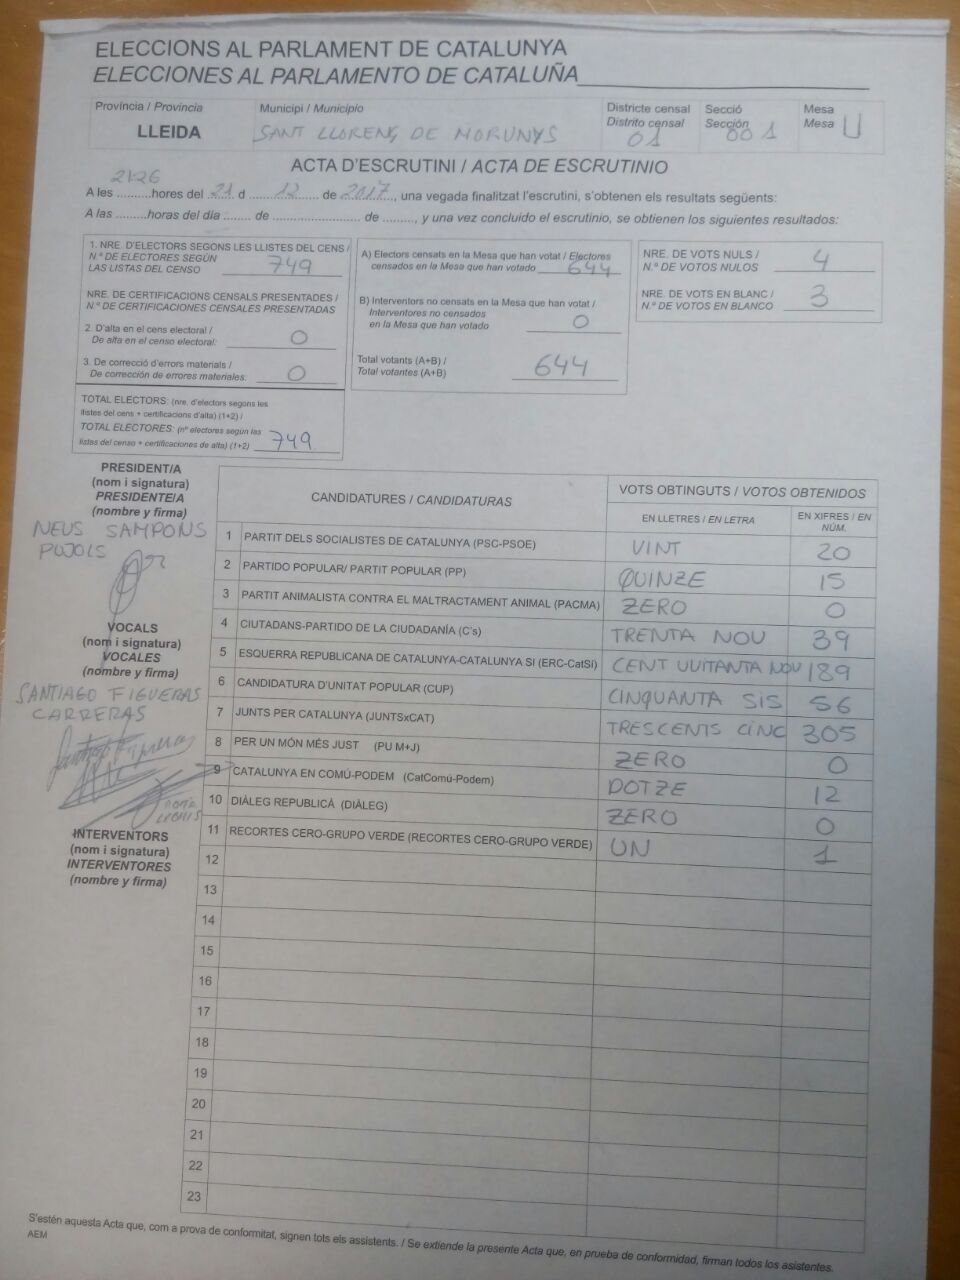 ELECCIONS AL PARLAMENT DE CATALUNYA
ELECCIONES AL PARLAMENTO DE CATALUÑA
Província / Provincia
LLEIDA
Municipi / Municipio
SANT LLORENÇ DE MORUNYS
Districte censal
Distrito censal
01
Secció
Sección
001
Mesa
Mesa
U
ACTA D'ESCRUTINI / ACTA DE ESCRUTINIO
21:26
A les ..........hores del 21 d 12 de 2017, una vegada finalitzat l'escrutini, s'obtenen els resultats següents:
A las .........horas del día ........ de ........................ de ........., y una vez concluido el escrutinio, se obtienen los siguientes resultados:
1. NRE. D'ELECTORS SEGONS LES LLISTES DEL CENS /
N.º DE ELECTORES SEGÚN
LAS LISTAS DEL CENSO 749
NRE. DE CERTIFICACIONS CENSALS PRESENTADES /
N.º DE CERTIFICACIONES CENSALES PRESENTADAS
2. D'alta en el cens electoral /
De alta en el censo electoral: 0
3. De correcció d'errors materials /
De corrección de errores materiales: 0
TOTAL ELECTORS: (nre. d'electors segons les
llistes del cens + certificacions d'alta) (1+2) /
TOTAL ELECTORES: (nº electores según las
listas del censo + certificaciones de alta) (1+2) 749
A) Electors censats en la Mesa que han votat / Electores
censados en la Mesa que han votado 644
B) Interventors no censats en la Mesa que han votat /
Interventores no censados
en la Mesa que han votado 0
Total votants (A+B) /
Total votantes (A+B) 644
NRE. DE VOTS NULS /
N.º DE VOTOS NULOS 4
NRE. DE VOTS EN BLANC /
N.º DE VOTOS EN BLANCO 3
PRESIDENT/A
(nom i signatura)
PRESIDENTE/A
(nombre y firma)
NEUS SAMPONS
PUJOLS
VOCALS
(nom i signatura)
VOCALES
(nombre y firma)
SANTIAGO FIGUERAS
CARRERAS
INTERVENTORS
(nom i signatura)
INTERVENTORES
(nombre y firma)
CANDIDATURES / CANDIDATURAS
VOTS OBTINGUTS / VOTOS OBTENIDOS
EN LLETRES / EN LETRA
EN XIFRES / EN NÚM.
1 PARTIT DELS SOCIALISTES DE CATALUNYA (PSC-PSOE) VINT 20
2 PARTIDO POPULAR/ PARTIT POPULAR (PP) QUINZE 15
3 PARTIT ANIMALISTA CONTRA EL MALTRACTAMENT ANIMAL (PACMA) ZERO 0
4 CIUTADANS-PARTIDO DE LA CIUDADANÍA (C's) TRENTA NOU 39
5 ESQUERRA REPUBLICANA DE CATALUNYA-CATALUNYA SI (ERC-CatSI) CENT VUITANTA NOU 189
6 CANDIDATURA D'UNITAT POPULAR (CUP) CINQUANTA SIS 56
7 JUNTS PER CATALUNYA (JUNTSxCAT) TRESCENTS CINC 305
8 PER UN MÓN MÉS JUST (PU M+J) ZERO 0
9 CATALUNYA EN COMÚ-PODEM (CatComú-Podem) DOTZE 12
10 DIÀLEG REPUBLICÀ (DIÀLEG) ZERO 0
11 RECORTES CERO-GRUPO VERDE (RECORTES CERO-GRUPO VERDE) UN 1
12
13
14
15
16
17
18
19
20
21
22
23
S'estén aquesta Acta que, com a prova de conformitat, signen tots els assistents. / Se extiende la presente Acta que, en prueba de conformidad, firman todos los asistentes.
AEM